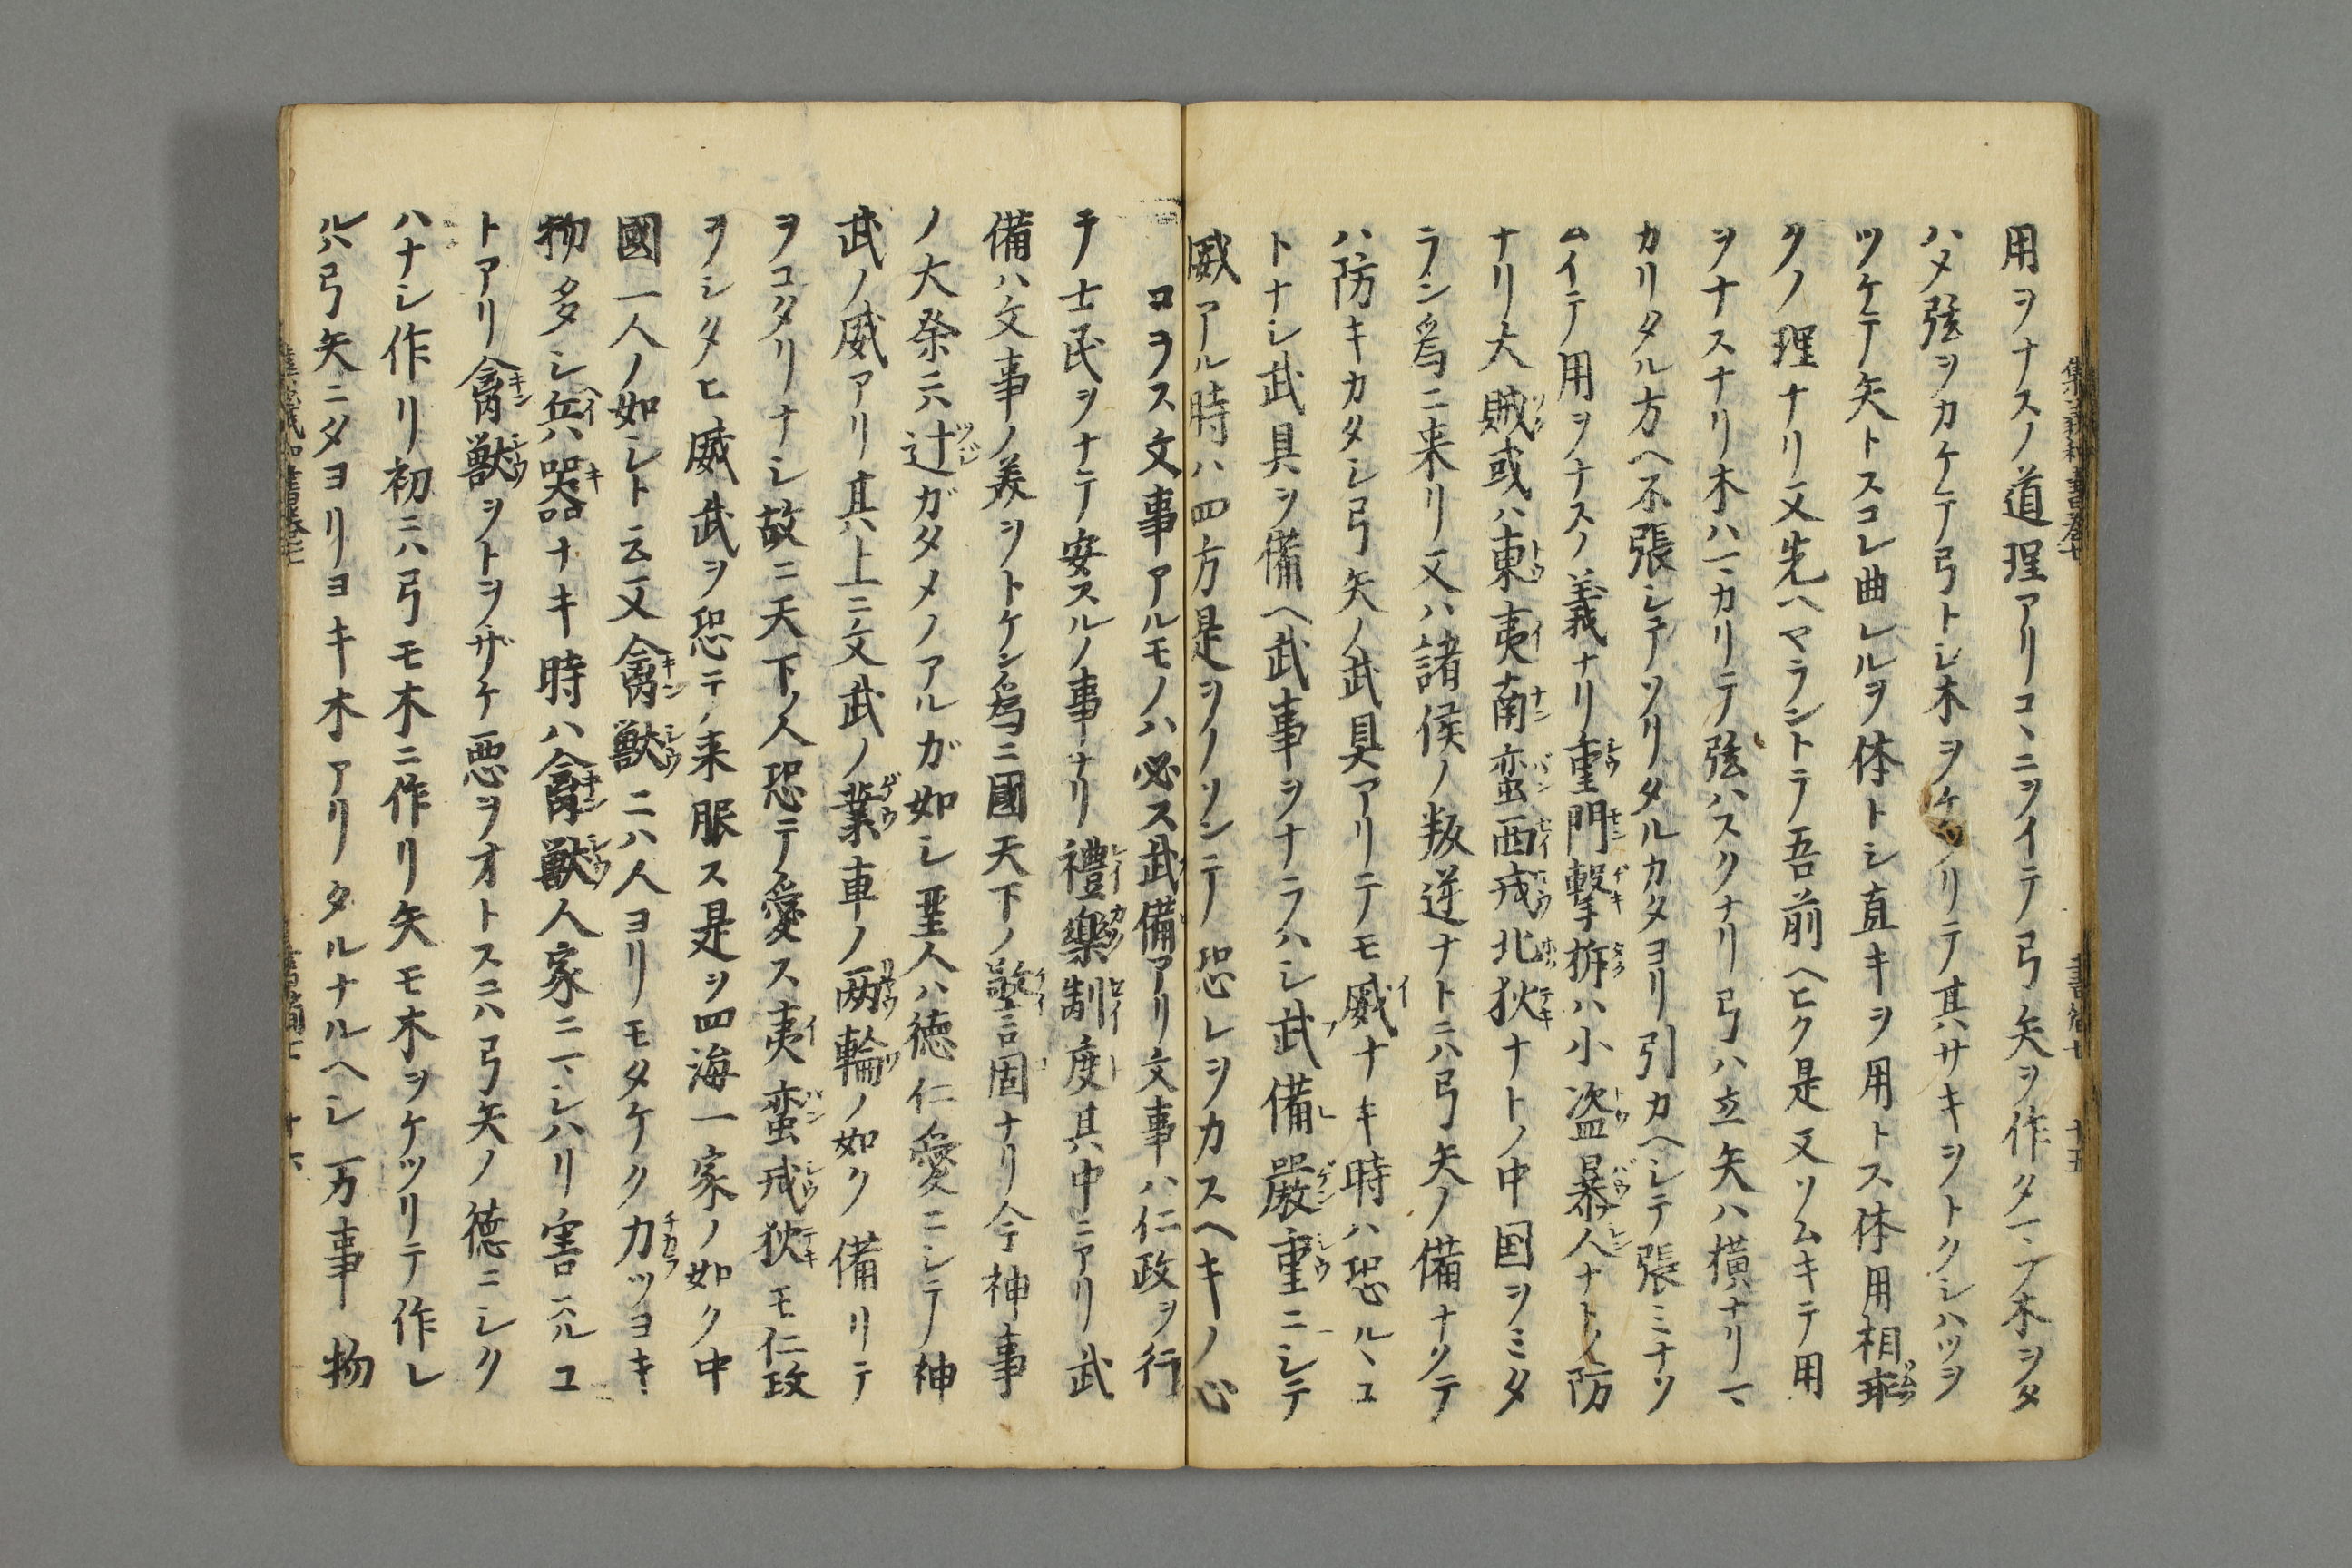 用ヲナスノ道理アリコヽニヲイテ弓矢ヲ作タマヽフ木ヲタ
ハメ弦ヲカケテ弓トシ木ヲケツリテ其サキヲトクシハツヲ
ツケテ矢トスコレ曲レルヲ体トシ直キヲ用トス体用相乖
クノ理ナリ又先ヘヤラントテ吾前ヘヒク是又ソムキテ用
ヲナスナリ木ハマカリテ弦ハスクナリ弓ハ立矢ハ横ナリマ
カリタル方ヘ不張シテソリタルカタヨリ引カヘシテ張ミナソ
ムイテ用ヲナスノ義ナリ重門撃柝ハ小盗暴人ナトノ防
ナリ大賊或ハ東夷南蛮西戎北狄ナトノ中国ヲミタ
ラン為ニ来リ又ハ諸侯ノ叛逆ナトニハ弓矢ノ備ナクテ
ハ防キカタシ弓矢ノ武具アリテモ威ナキ時ハ恐ルヽコ
トナシ武具ヲ備ヘ武事ヲナラハシ武備嚴重ニシテ
威アル時ハ四方是ヲノソンテ恐レヲカスヘキノ心
コヲス文事アルモノハ必ス武備アリ文事ハ仁政ヲ行
テ士民ヲナテ安スルノ事ナリ禮樂制度其中ニアリ武
備ハ文事ノ美ヲトケン為ニ國天下ノ警固ナリ今神事
ノ大祭ニハ辻ガタメノアルガ如シ聖人ハ徳仁愛ニシテ神
武ノ威アリ其上ニ文武ノ業車ノ两輪ノ如ク備リテ
ヲコタリナシ故ニ天下ノ人恐テ愛ス夷蛮戎狄モ仁政
ヲシタヒ威武ヲ恐テ来服ス是ヲ四海一家ノ如ク中
國一人ノ如シト云又禽獣ニハ人ヨリモタケク力ツヨキ
物多シ兵器ナキ時ハ禽獣人家ニマシハリ害スルコ
トアリ禽獣ヲトヲザケ悪ヲオトスニハ弓矢ノ徳ニシク
ハナシ作リ初ニハ弓モ木ニ作リ矢モ木ヲケツリテ作レ
ルハ弓矢ニタヨリヨキ木アリタルナルヘシ万事物